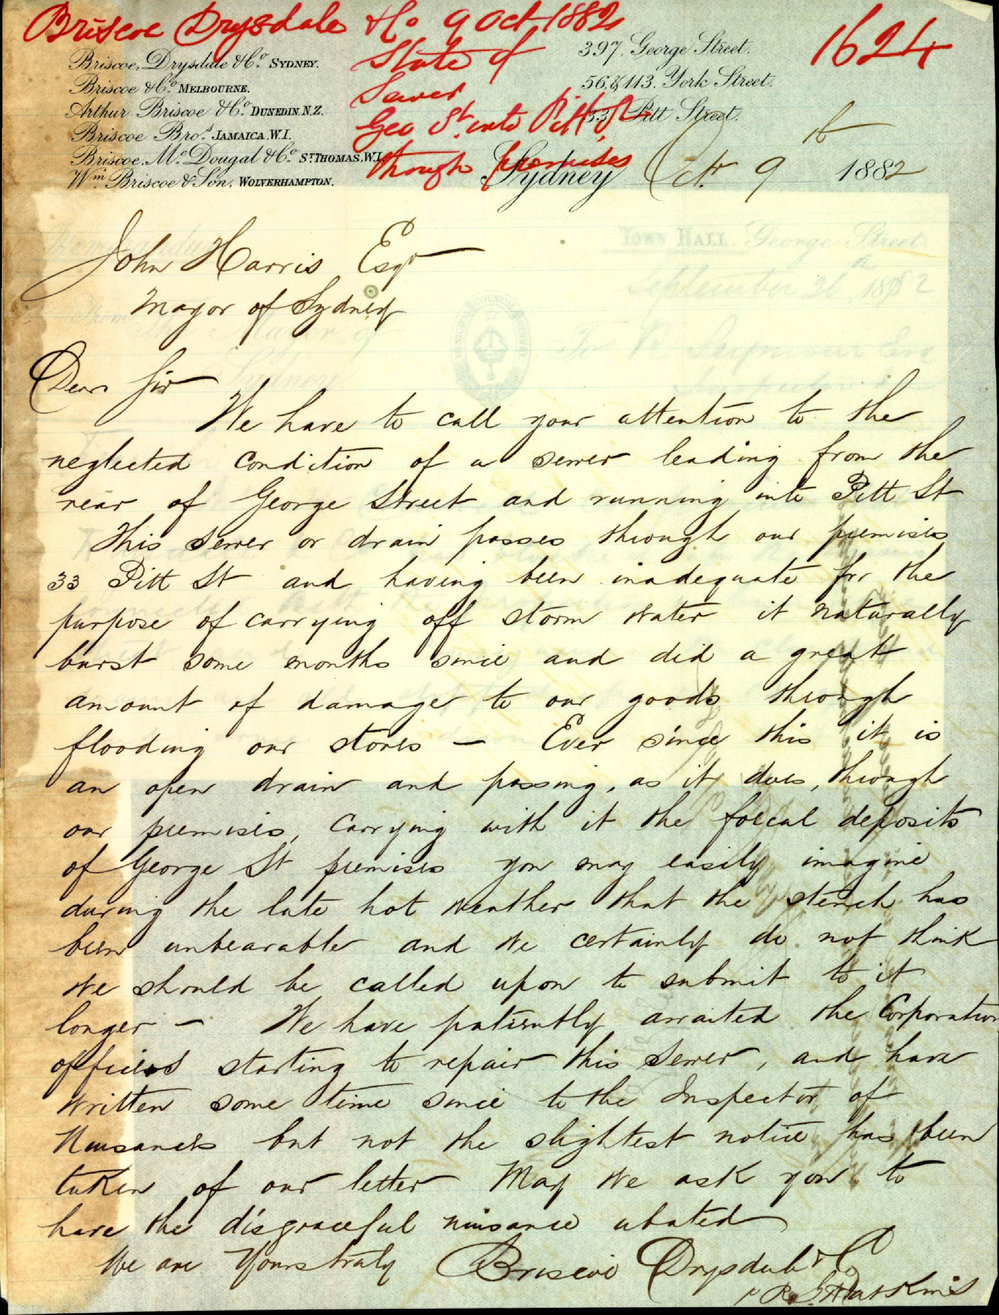 Briscoe Drysdale & Co 9 Oct 1882
State of
Sewer
Geo St. into Pitt St
through premises
1624
Briscoe, Drysdale & Co. SYDNEY.
Briscoe & Co. MELBOURNE.
Arthur Briscoe & Co. DUNEDIN N.Z.
Briscoe Bros. JAMAICA, W.I.
Briscoe, McDougal & Co. ST THOMAS, W.I.
Wm. Briscoe & Son, WOLVERHAMPTON.
397, George Street.
56, & 113, York Street.
Pitt Street.
Sydney Oct 9 1882
John Harris Esqr
Mayor of Sydney
Dear Sir
We have to call your attention to the
neglected condition of a sewer leading from the
rear of George Street and running into Pitt St
This sewer or drain passes through our premises
33 Pitt St and having been inadequate for the
purpose of carrying off storm water it naturally
burst some months since and did a great
amount of damage to our goods through
flooding our stores — Ever since this it is
an open drain and passing, as it does, through
our premises, carrying with it the foecal deposits
of George St premises you may easily imagine
during the late hot weather that the stench has
been unbearable and we certainly do not think
we should be called upon to submit to it
longer — We have patiently awaited the Corporation
officials starting to repair this sewer, and have
written some time since to the Inspector of
Nuisances but not the slightest notice has been
taken of our letter May we ask you to
have the disgraceful nuisance abated
We are Yours truly Briscoe Drysdale & Co
TOWN HALL, George Street.
September 26 1882
To R Seymour Esq
Mayor of
Sydney